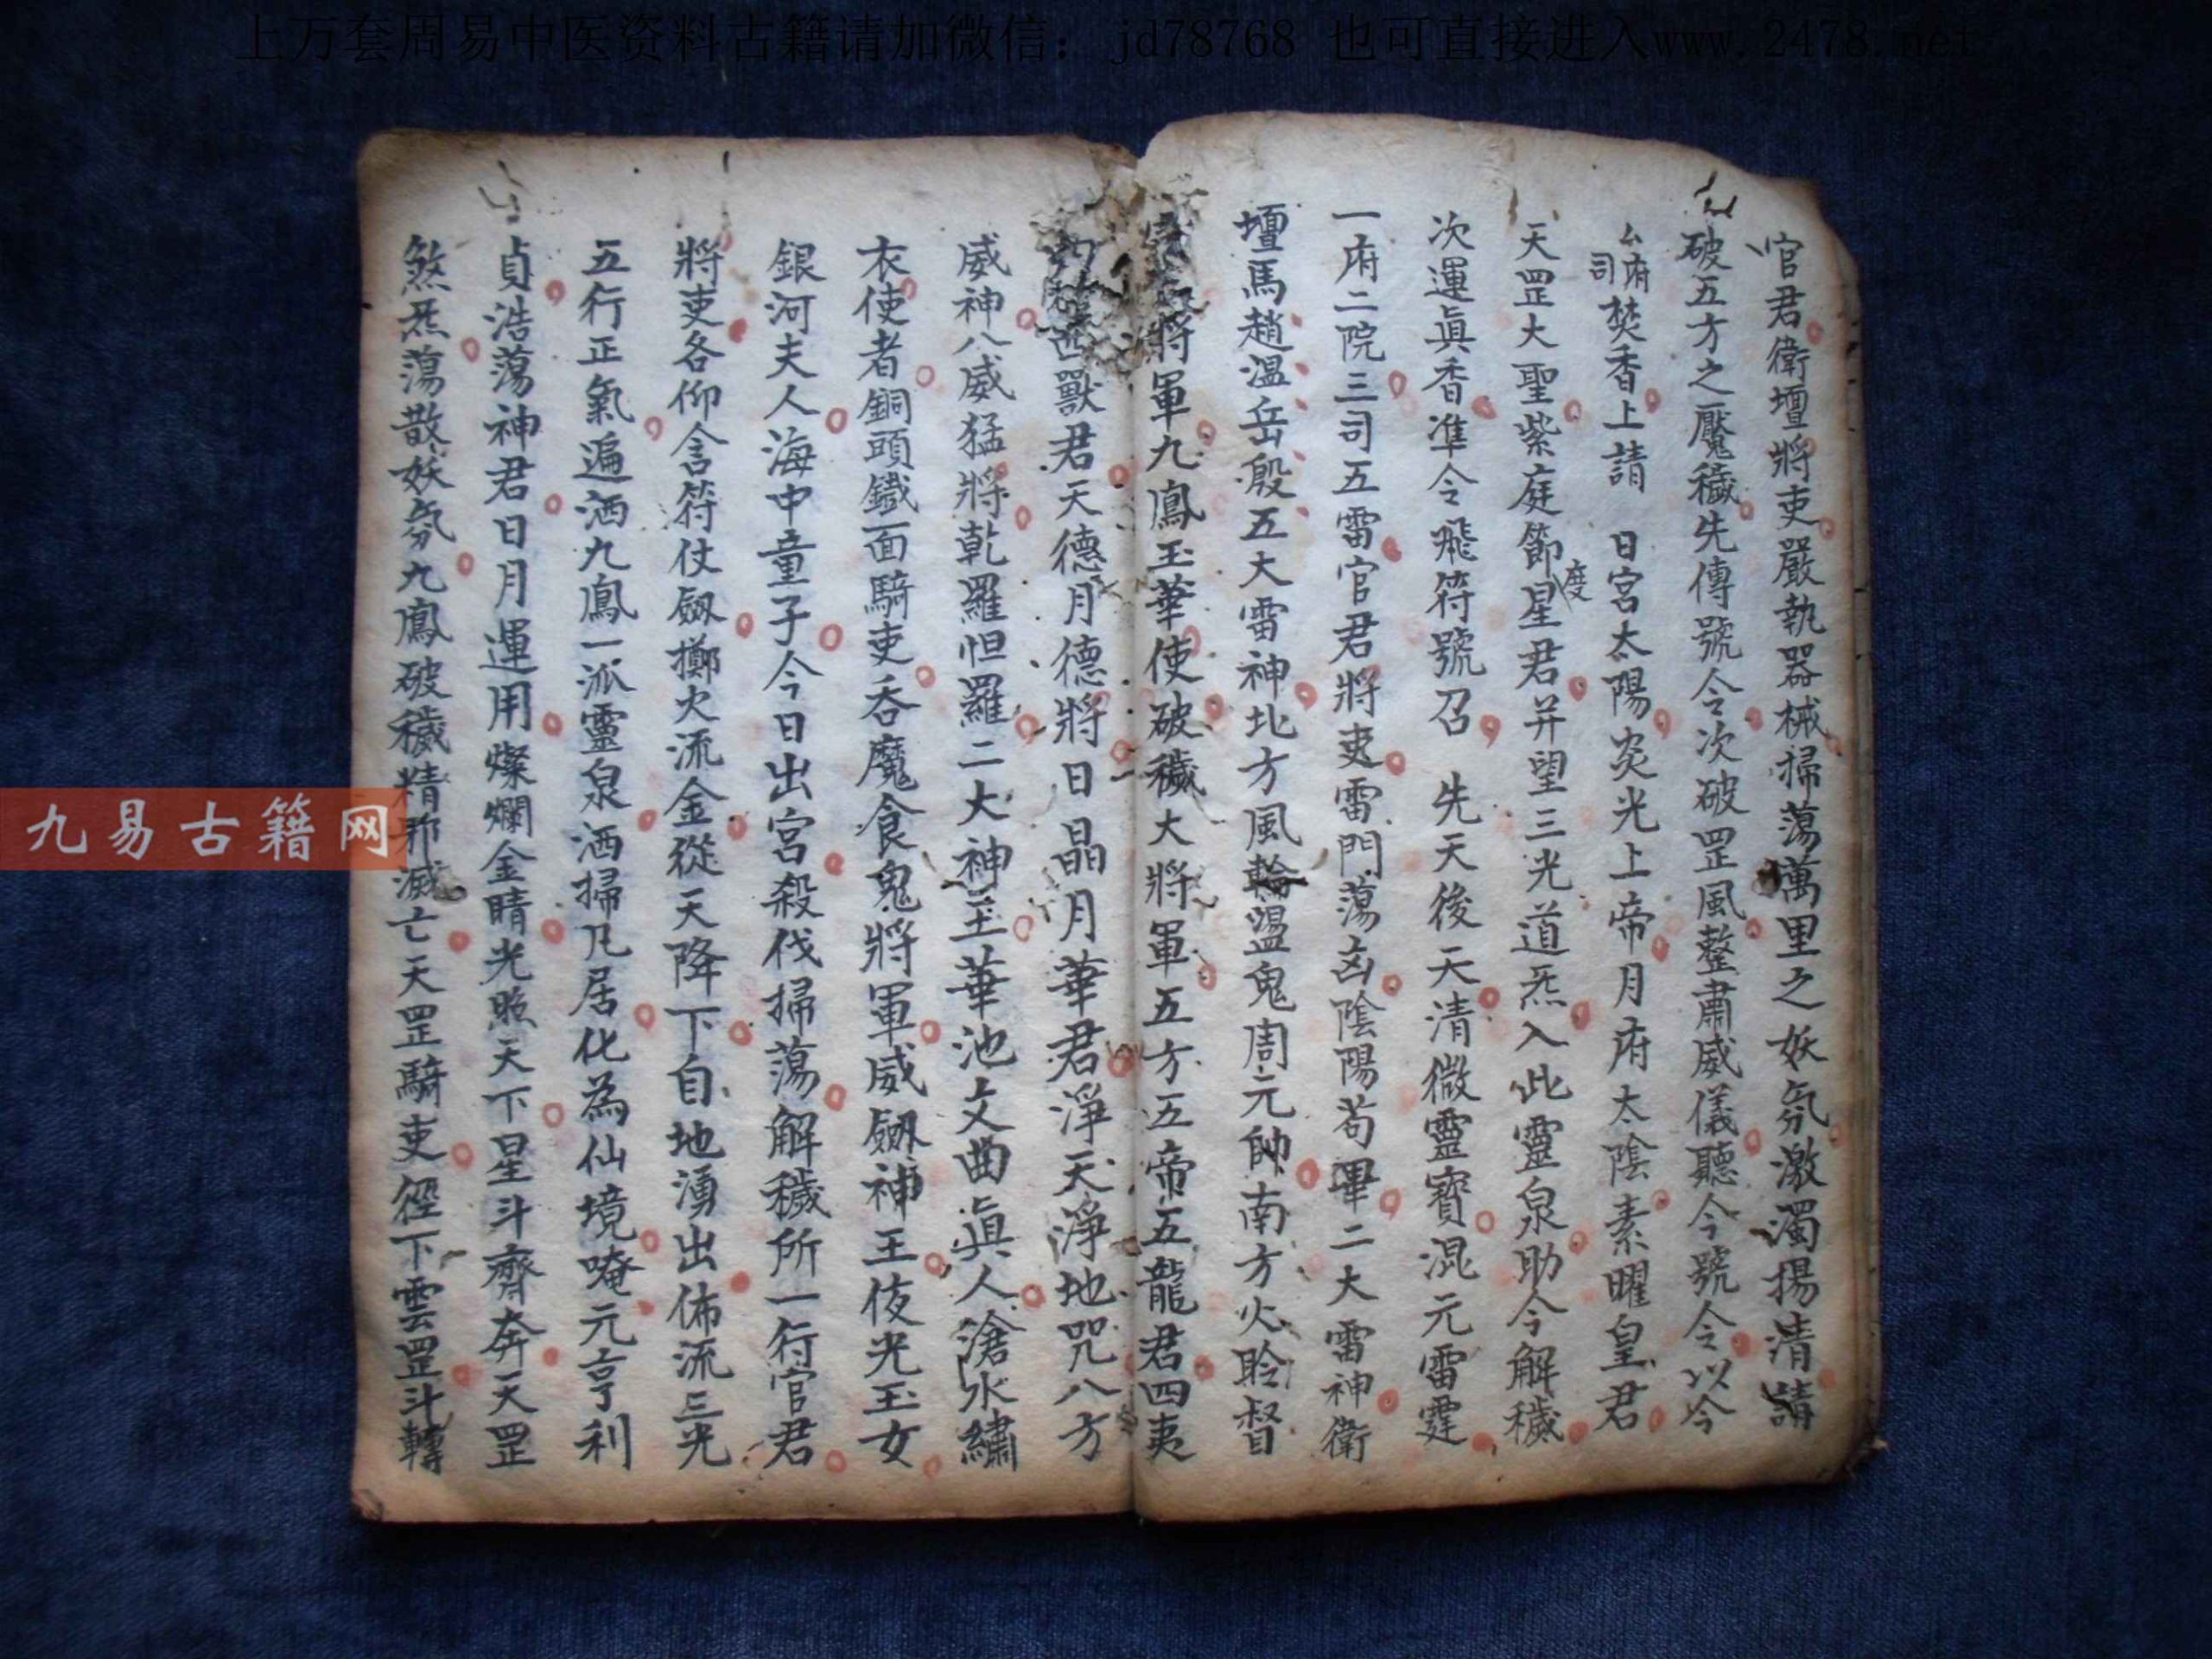 上万套周易中医资料古籍请加微信： jd78768 也可直接进入www.2478.net
官君衛壇將吏嚴執器械掃蕩萬里之妖氛激濁揚清請
破五方之魘穢先傳號令次破罡風整肅威儀聽今號令以今
厶府司焚香上請 日宮太陽炎光上帝月府太陰素曜皇君
天罡大聖紫庭節度星君并望三光道炁入此靈泉助今解穢
次運眞香準令飛符號召 先天後天清微靈寳混元雷霆
一府二院三司五雷官君將吏雷門蕩凶陰陽苟畢二大雷神衛
壇馬趙溫岳殷五大雷神北方風輪盪鬼周元帥南方火聆督
將軍九鳳玉華使破穢大將軍五方五帝五龍君四夷
獸君天德月德將日晶月華君淨天淨地咒八方
威神八威猛將乾羅怛羅二大神玉華池文曲眞人滄水繡
衣使者銅頭鐵面騎吏吞魔食鬼將軍威劔神王夜光玉女
銀河夫人海中童子今日出宮殺伐掃蕩解穢所一行官君
將吏各仰含符仗劔擲火流金從天降下自地湧出佈流三光
五行正氣遍洒九鳳一派靈泉洒掃凡居化為仙境唵元亨利
貞浩蕩神君日月運用燦爛金睛光照天下星斗齊奔天罡
煞炁蕩散妖氛九鳳破穢精邪滅亡天罡騎吏徑下雲罡斗轉
九易古籍网